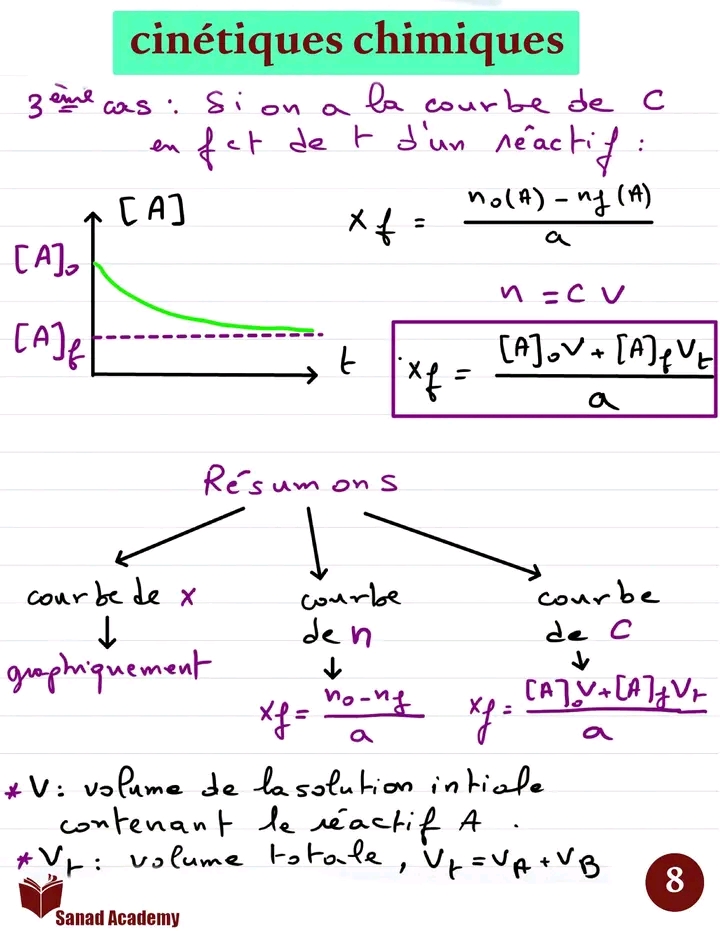 cinétiques chimiques
3ème cas : Si on a la courbe de C
en fct de t d'un réactif :
[A]
[A]₀
[A]f
t
xf = (n₀(A) - nf(A)) / a
n = C V
xf = ([A]₀V + [A]fVt) / a
Résumons
courbe de x
↓
graphiquement
courbe
de n
↓
xf = (n₀ - nf) / a
courbe
de C
↓
xf = ([A]₀V + [A]fVt) / a
* V : volume de la solution intiale
contenant le réactif A .
* Vt : volume totale , Vt = VA + VB
8
Sanad Academy